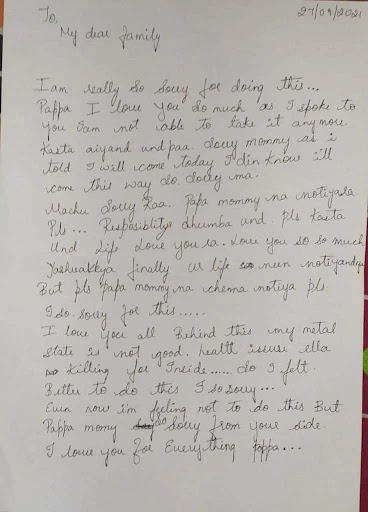 27/09/2021
To,
My dear family
I am really so sorry for doing this...
Pappa I love you so much as I spoke to
you Iam not able to take it anymore.
Kasta aiyand undpaa. Sorry mommy as i
told I will come today I din know i'll
come this way so. Sorry ma.
Machu Sorry Raa. Papa mommy na notiyala
Pls... Resposiblitys dhumba und. Pls Kasta
Und life love you ra. Love you so so much
finally ur life neen
But pls Papa mommy na chenna notiya pls.
I so. Sorry for this.....
I love you all Behind this my metal
state is not good. health issuse ella
Killing for Inside...... So I felt.
Better to do this I so sorry...
Even now i'm feeling not to do this But
Pappa momy so Sorry from your side.
I love you for Everything Pappa...